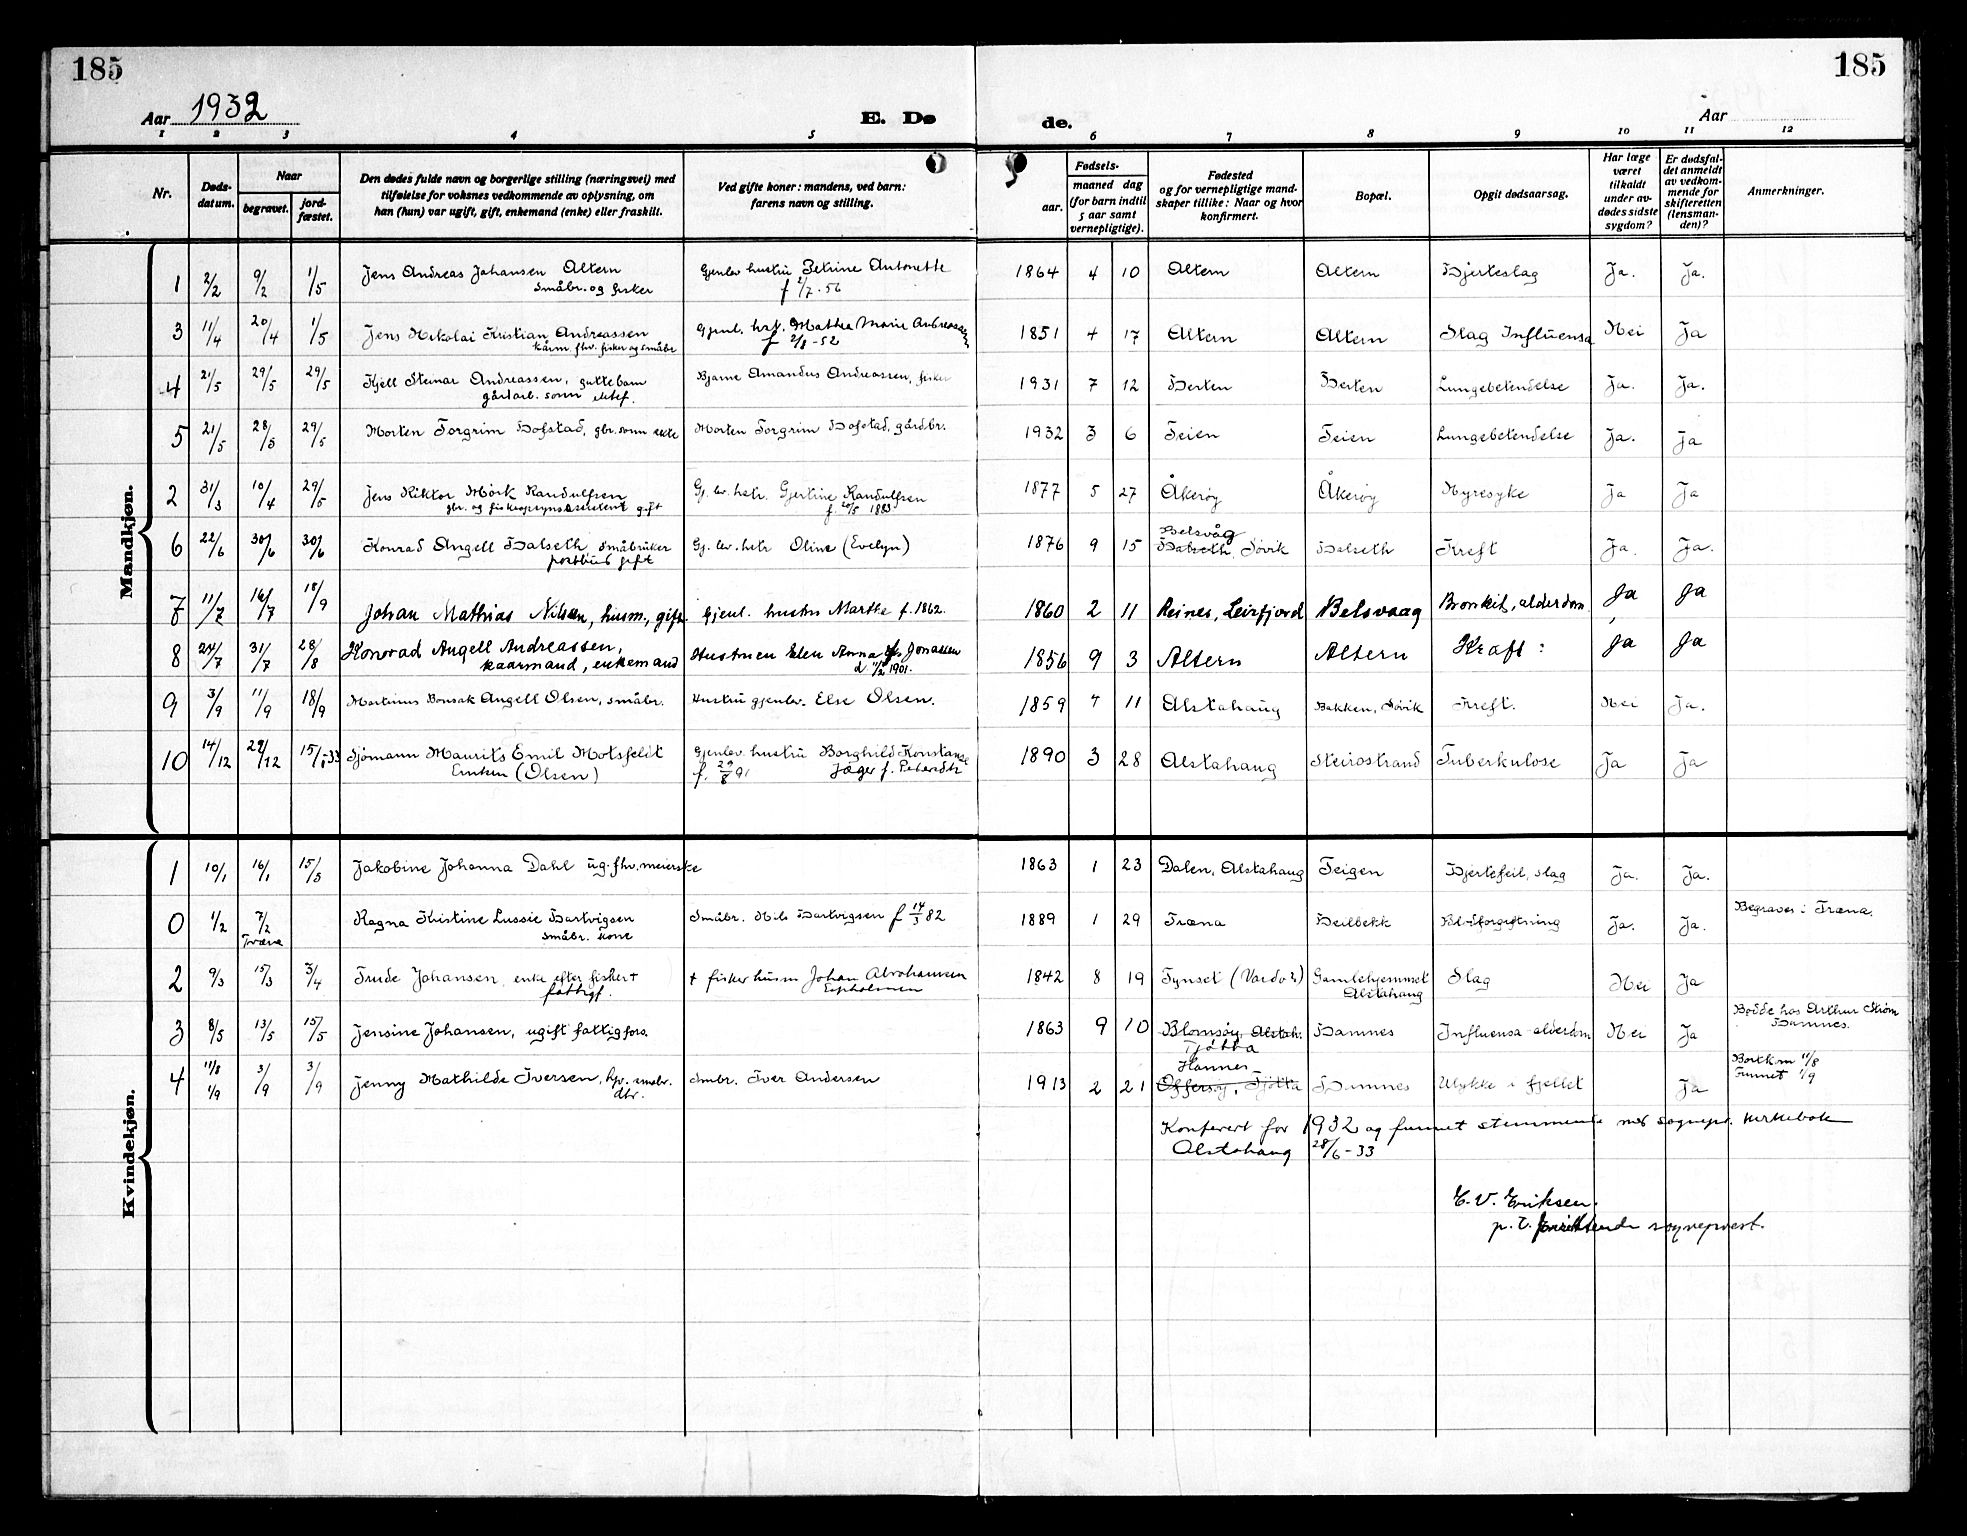 185
185
Aar 1932
E. Dø
de.
Aar
1 2 3 4 5 6 7 8 9 10 11 12
Nr.
Døds-
datum.
Naar
begravet.
jord-
fæstet.
Den dødes fulde navn og borgerlige stilling (næringsvei) med
tilføielse for voksnes vedkommende av oplysning, om
han (hun) var ugift, gift, enkemand (enke) eller fraskilt.
Ved gifte koner: mandens, ved barn:
farens navn og stilling.
Fødsels-
aar.
maaned dag
(for barn indtil
5 aar samt
vernepligtige).
Fødested
og for vernepligtige mand-
skaper tillike: Naar og hvor
konfirmert.
Bopæl.
Opgit dødsaarsag.
Har læge
været
tilkaldt
under av-
dødes sidste
sygdom?
Er dødsfal-
det anmeldt
av vedkom-
mende for
skifteretten
(lensman-
den)?
Anmerkninger.
Mandkjøn.
1 2/2 9/2 1/5 Jens Andreas Johansen Altern Gjenlev hustru Petrine Antonette 1864 4 10 Altern Altern Hjerteslag Ja. Ja.
småbr. og fisker f 2/7-56
3 11/4 20/4 1/5 Jens Nikolai Kristian Andreassen Gjenl. hst. Mathea Marie Andreassen 1851 4 17 Altern Altern Slag Influensa Nei Ja
kårm. fhv. fisker og småbr f 2/8-52
4 21/5 29/5 29/5 Kjell Steinar Andreassen, guttebarn Bjarne Amandus Andreassen, fisker 1931 7 12 Herten Herten Lungebetendelse Ja. Ja.
gårdarb. sønn ektef.
5 21/5 28/5 29/5 Morten Torgrim Hofstad, gbr. sønn ekte Morten Torgrim Hofstad, gårdbr. 1932 3 6 Teien Teien Lungebetendelse Ja. Ja
2 31/3 10/4 29/5 Jens Viktor Mørk Randulfsen Gj. lev. hstr. Gjertine Randulfsen 1877 5 27 Åkerøy Åkerøy Nyresyke Ja Ja
gbr. og fiskeopsynsassistent gift f. 20/5 1883
6 22/6 30/6 30/6 Konrad Angell Halseth småbruker Gj. lev. hstr Oline (Evelyn) 1876 9 15 Belsvåg
Halseth, Søvik Halseth Kreft Ja. Ja.
postbud gift
7 11/7 16/7 18/9 Johan Mathias Nilsen, husm, gift. Gjenl. hustru Marthe f. 1862. 1860 2 11 Reines, Leirfjord Belsvaag Bronkit, alderdom Ja Ja
8 24/7 31/7 28/8 Konrad Angell Andreassen, Hustruen Elen Anna f. Jonassen 1856 9 3 Altern Altern Kræft: Ja Ja
kaarmand, enkemand d 11/2 1901.
9 3/9 11/9 18/9 Martinus Bonsak Angell Olsen, småbr. Hustru gjenlev. Else Olsen. 1859 7 11 Alstahaug Bakken, Søvik Kreft. Nei Ja.
10 14/12 22/12 15/1-33 Sjømann Maurits Emil Motsfeldt Gjenlev. hustru Borghild Konstanse 1890 3 28 Alstahaug Steirostrand Tuberkulose Ja Ja
(Olsen) f. 29/8 91 Jæger f.
Kvindekjøn.
1 10/1 16/1 15/5 Jakobine Johanna Dahl ug. fhv. meierske 1863 1 23 Dalen, Alstahaug Teigen Hjertefeil, slag Ja. Ja.
0 1/2 7/2 Ragna Kristine Lussie Hartvigsen Småbr. Nils Hartvigsen f 14/3 82 1889 1 29 Træna Heilbekk Blodforgiftning Ja. Ja. Begraves i Træna.
Træna småbr. kone
2 9/3 15/3 3/4 Trude Johansen, enke efter fisker + + fisker husm Johan Abrahamsen 1842 8 19 Tynset (Vardø?) Gamlehjemmet Slag Nei Ja
fattigf. Alstahaug
3 8/5 13/5 15/5 Jensine Johansen, ugift fattigfors. 1863 9 10 Blomsøy, Alstah. Hamnes Influensa-alderdom Nei Ja Bodde hos Arthur Strøm
Tjøtta Hamnes.
4 11/8 1/9 3/9 3/9 Jenny Mathilde Iversen, hjv. småbr. Småbr. Iver Andersen 1913 2 21 Hamnes
Offersøy, Tjøtta Hamnes Ulykke i fjellet Ja Bortkom 11/8
dtr. Funnet 1/9
Konferert for 1932 og funnet stemmende med sognepr. kirkebok
Alstahaug 28/6-33
E. V. Eriksen.
p. t. sogneprest.